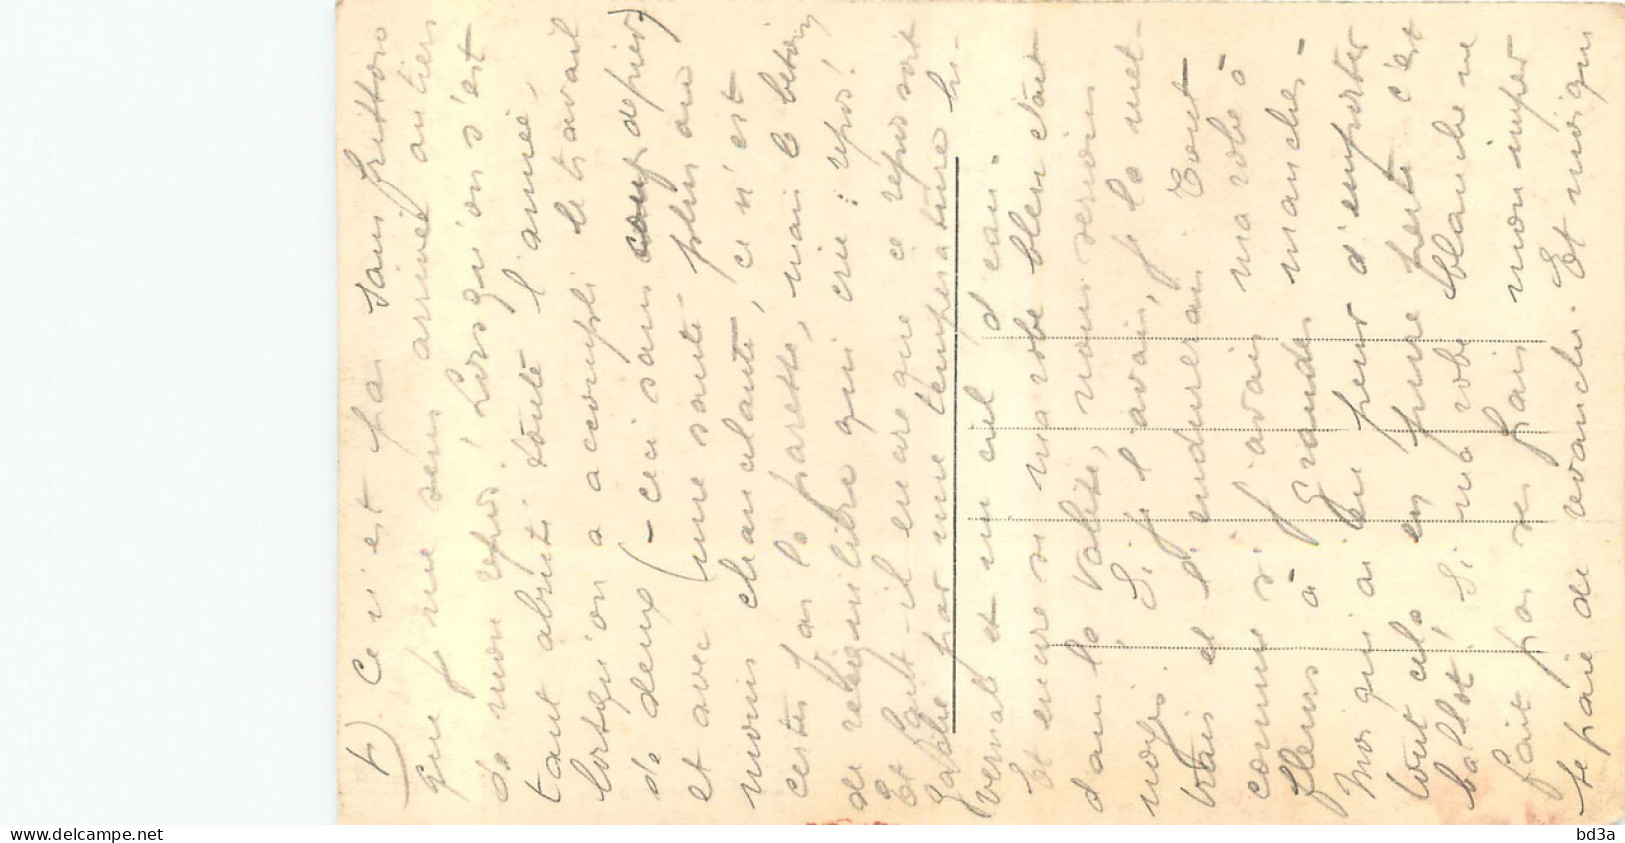 4) Ce n'est pas sans frissons
que je me sens arrivée au tiers
de mon repos! Lorsqu'on s'est
tant abruti toute l'année,
lorsqu'on a accompli le travail
de deux (- ceci sans coup de pied)
et avec une santé plus ou
moins chancelante, ce n'est
certes pas la paresse, mais le besoin
de rééquilibre qui crie : repos!
Et faut-il encore que ce repos soit
gâché par une température hi-
vernale et un ciel d'eau.
Et encore si ma robe bleue était
dans la valise, nous serions
Si je l'avais, je la met-
trais et l'endurerais. Tout
comme si j'avais ma robe à
fleurs à grandes manches-
Moi qui ai eu peur d'emporter
tout cela en pure perte c'est
ballot! Si ma robe blanche ne
fait pas ses frais mon imper
se paie de revanche. Et moi qui
www.delcampe.net
bd3a